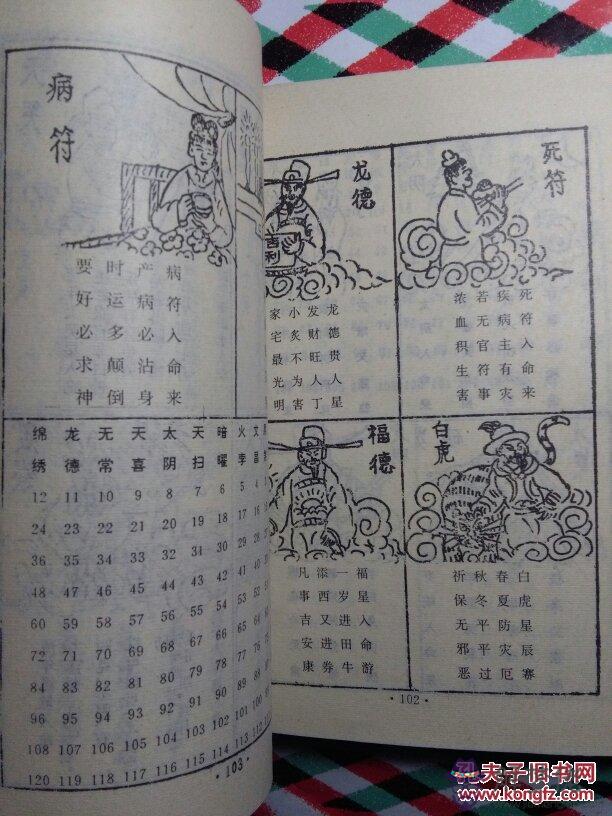 死符
死符入命来
疾病主有灾
若无官符事
浓血积生害
龙德
吉利
龙德贵人星
发财旺人丁
小炙不为害
家宅最光明
白虎
白虎星辰寨
春夏防灾厄
秋冬平平过
祈保无邪恶
福德
福星入命游
一岁进田牛
添西又进券
凡事吉安康
·102·
病符
病符入命来
产病必沾身
时运多颠倒
要好必求神
绵绣 龙德 无常 天喜 太阴 天扫 暗曜 火孛
12 11 10 9 8 7 6 5 4
24 23 22 21 20 19 18 17 16
36 35 34 33 32 31 30 29 28
48 47 46 45 44 43 42 41 40
60 59 58 57 56 55 54 53 52
72 71 70 69 68 67 66 65 64
84 83 82 81 80 79 78 77 76
96 95 94 93 92 91 90 89 88
108 107 106 105 104 103 102 101 100
120 119 118 117 116 115 114 113 112
·103·
孔夫子旧书网
www.kongfz.com